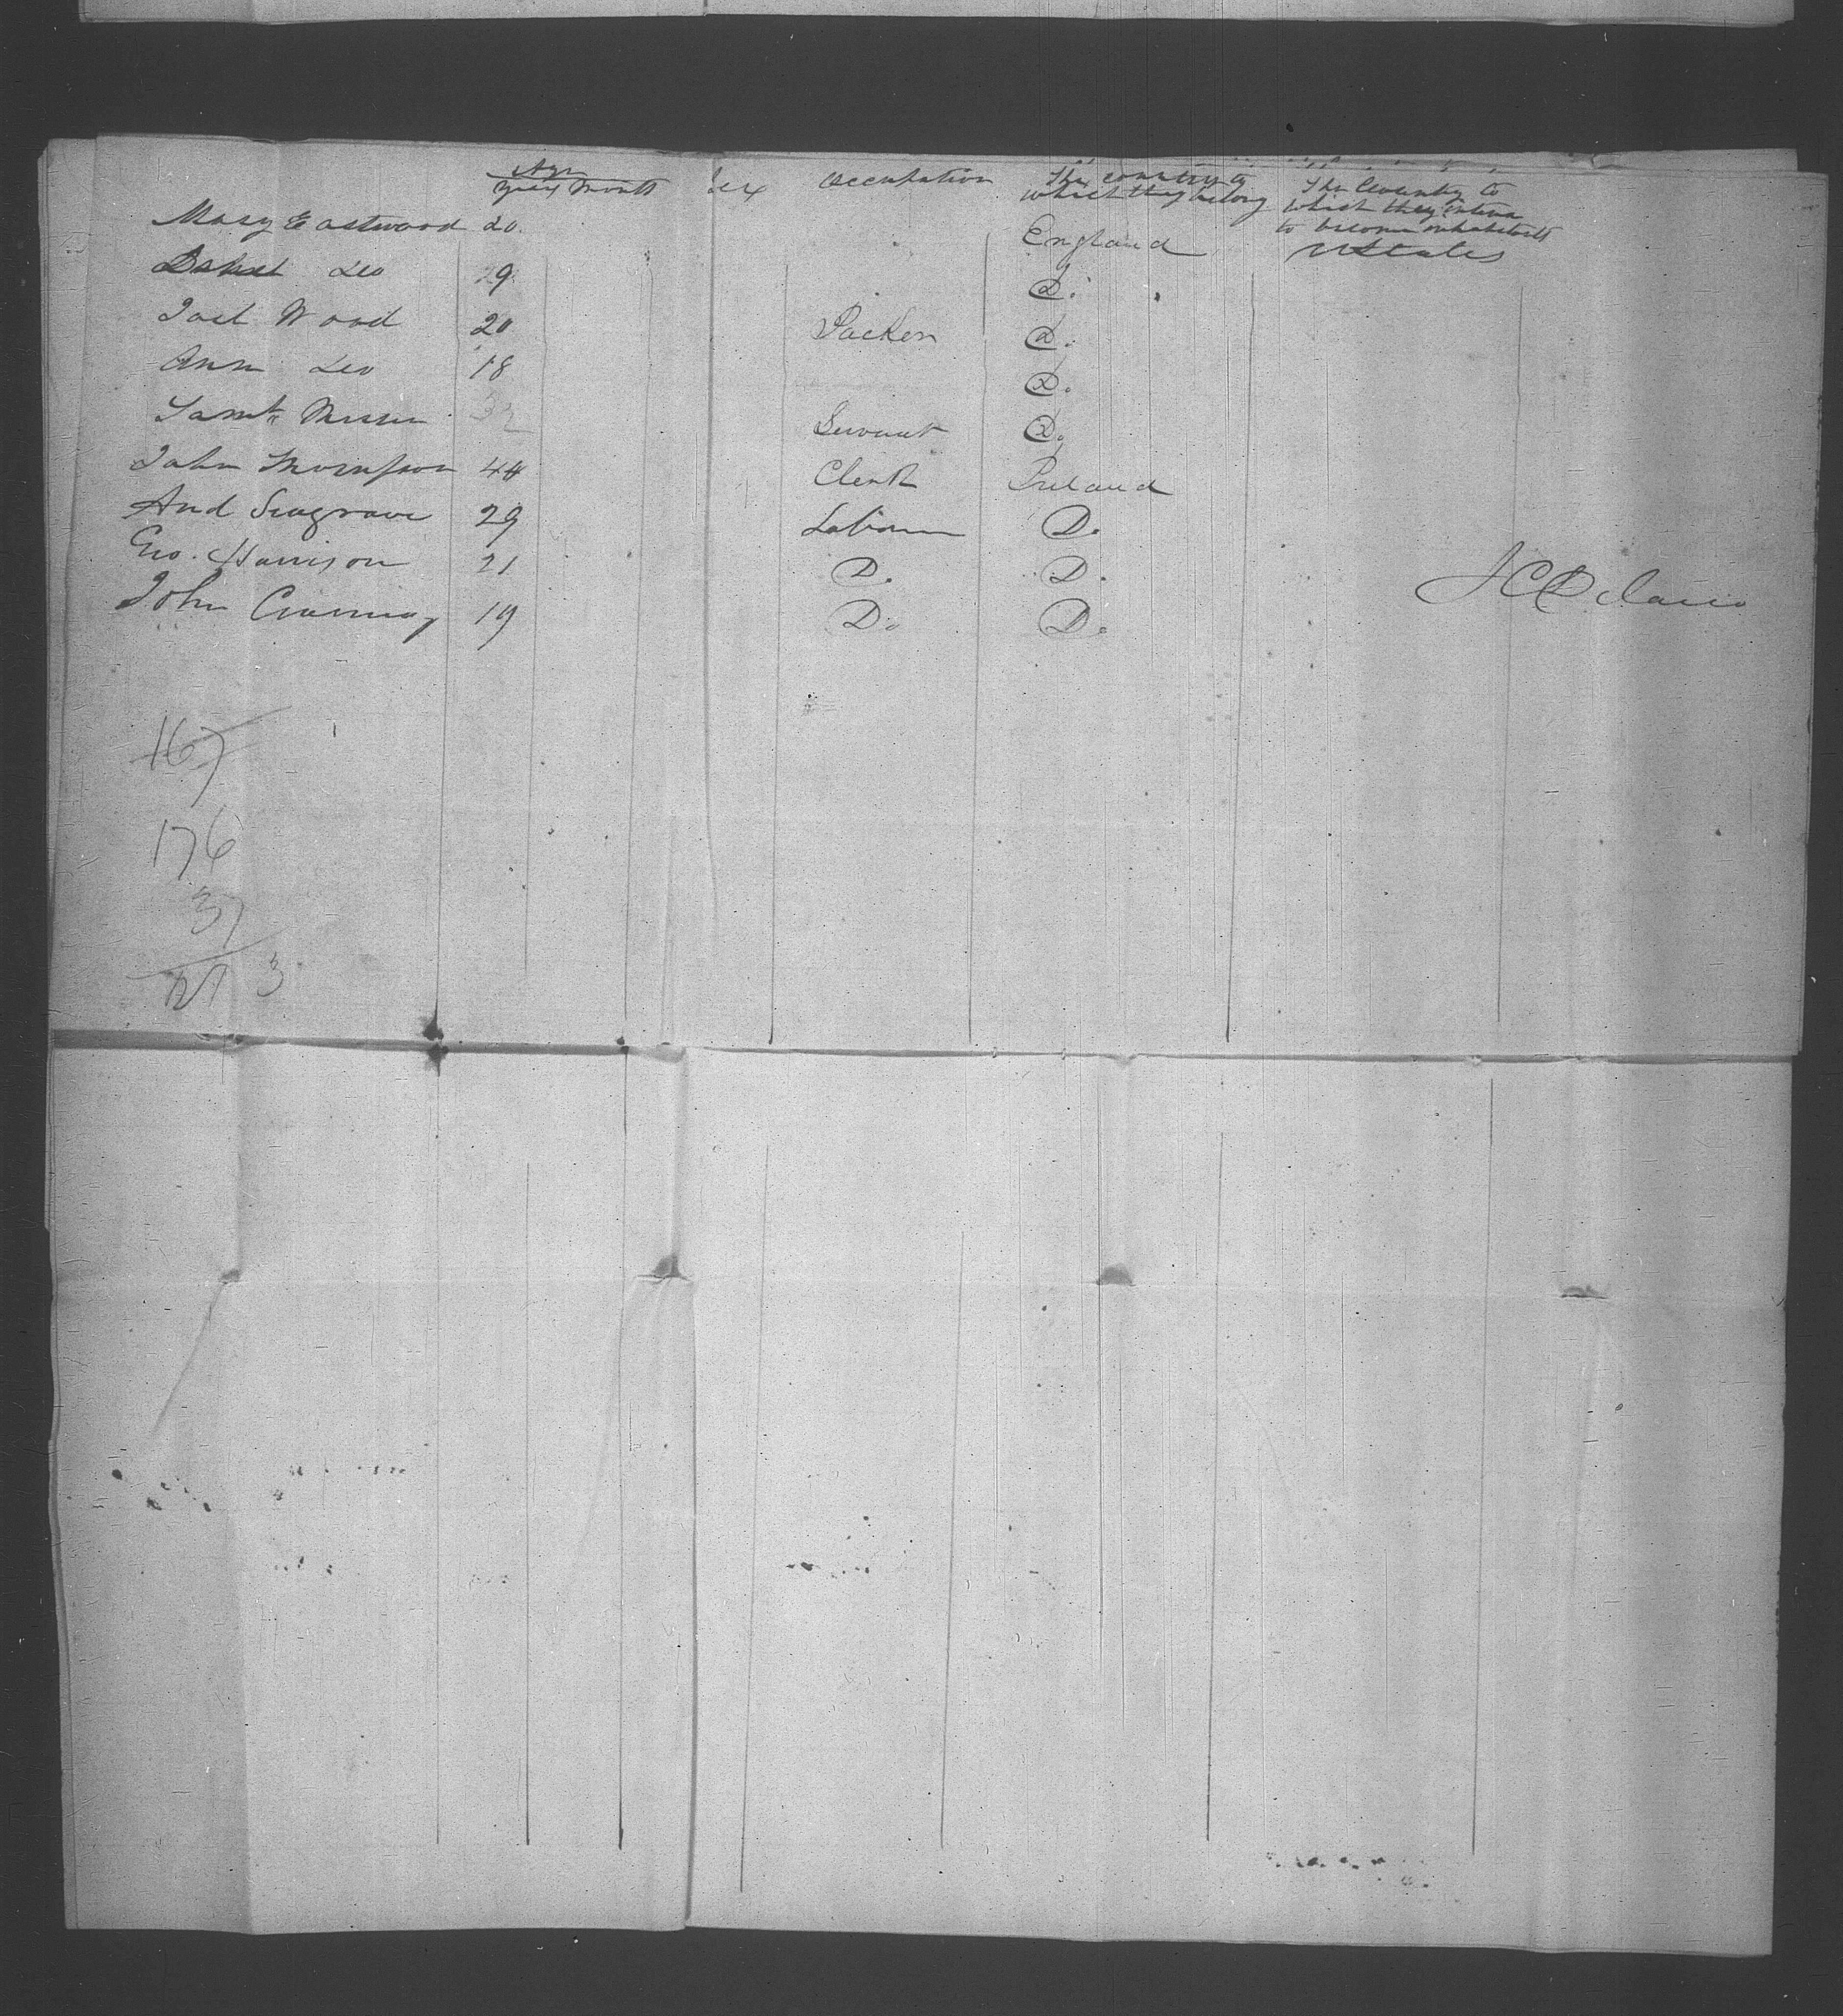 Age
years Months Sex Occupation The country to which they belong The Country to which they intend to become inhabitants
Mary Eastwood 20 England UStates
Do 29 D.
Joel Wood 20 Packer D.
Ann Do 18 D.
32 Servant D.
John Thompson 44 Clerk Ireland
And Seagrave 29 Labourer D.
Geo. Harrison 21 D. D.
John 19 D. D.
J C Delano
167
176
37
213